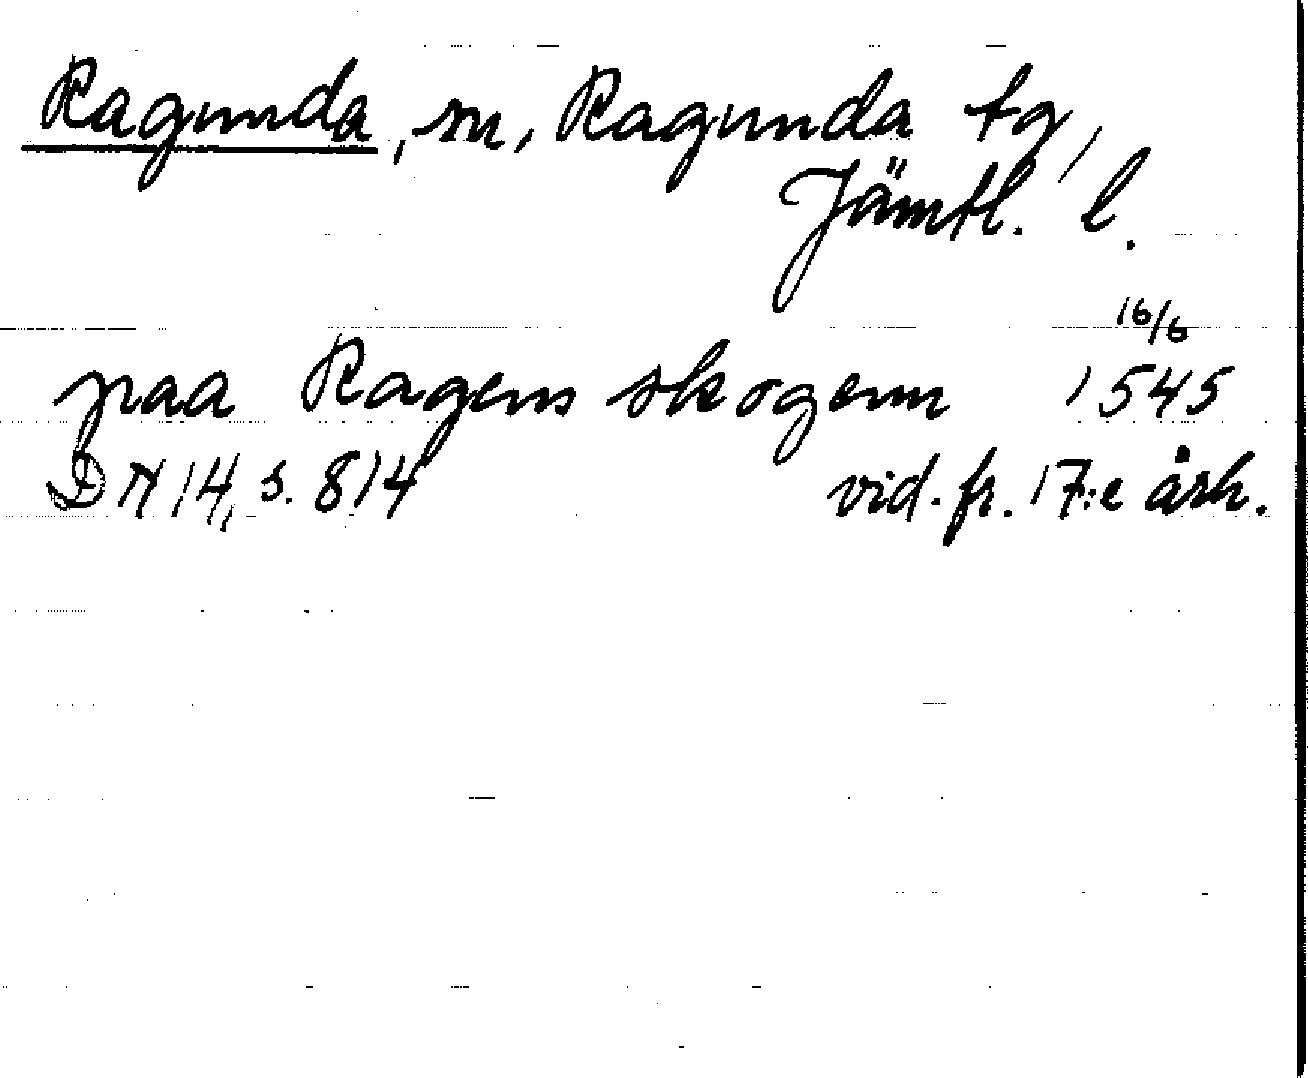 Ragunda, sn, Ragunda tg,
Jämtl. l.
16/6
paa Ragens skogenn 1545
DN 14, s. 814 vid. fr. 17:e årh.